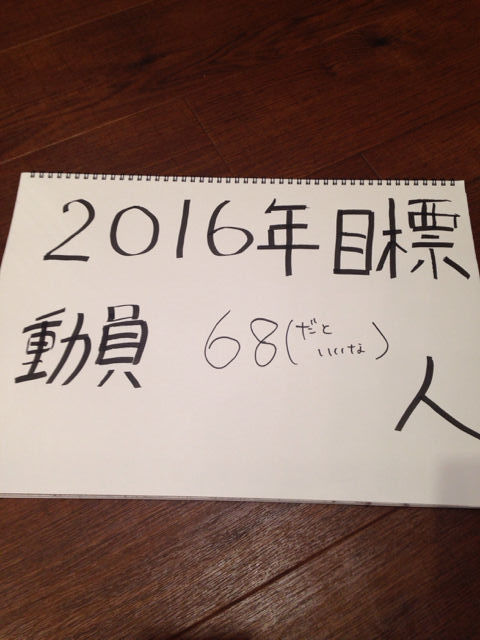 2016年目標
動員 68(だと
いいな)
人